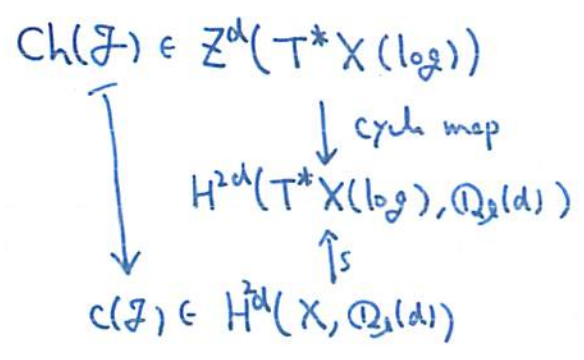 Ch(ℱ) ∈ Z^d(T*X(log))
↓ cycle map
H^{2d}(T*X(log), ℚ_ℓ(d))
↑s
c(ℱ) ∈ H^{2d}(X, ℚ_ℓ(d))